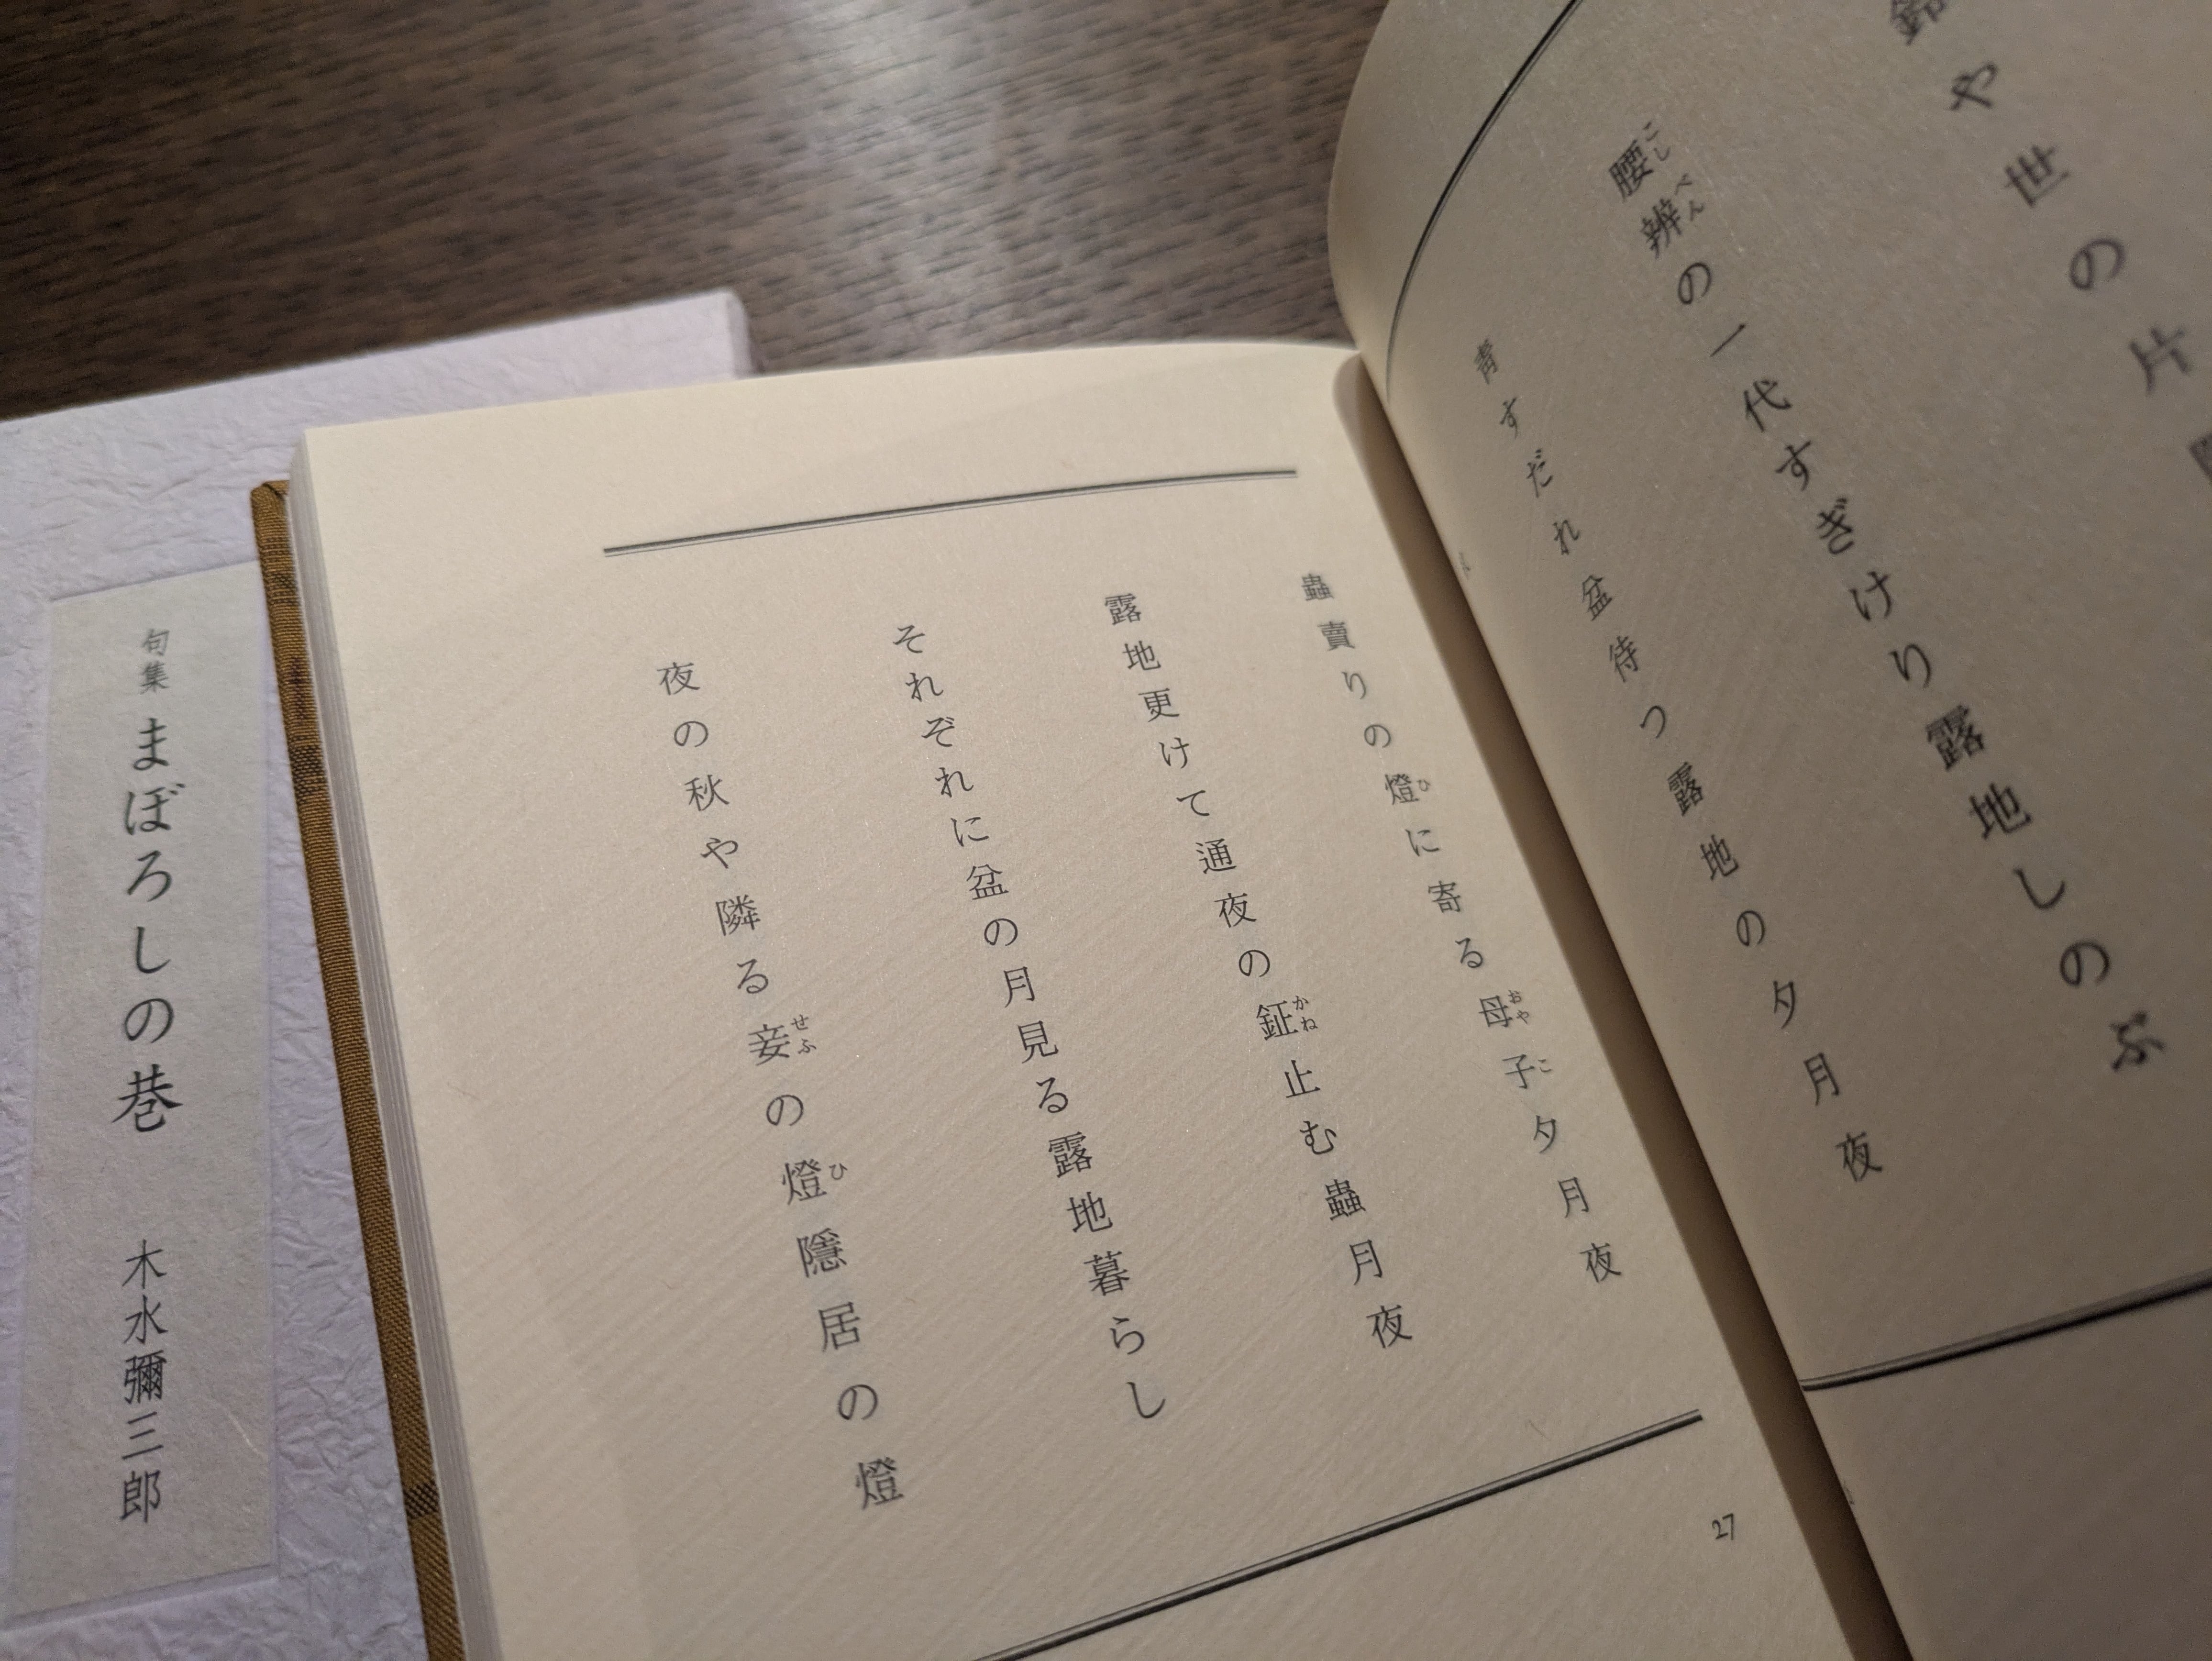 鈴や世の片
腰辨の一代すぎけり露地しのぶ
靑すだれ盆待つ露地の夕月夜
蟲賣りの燈に寄る母子夕月夜
露地更けて通夜の鉦止む蟲月夜
それぞれに盆の月見る露地暮らし
夜の秋や隣る妾の燈隱居の燈
27
句集 まぼろしの巷 木水彌三郎